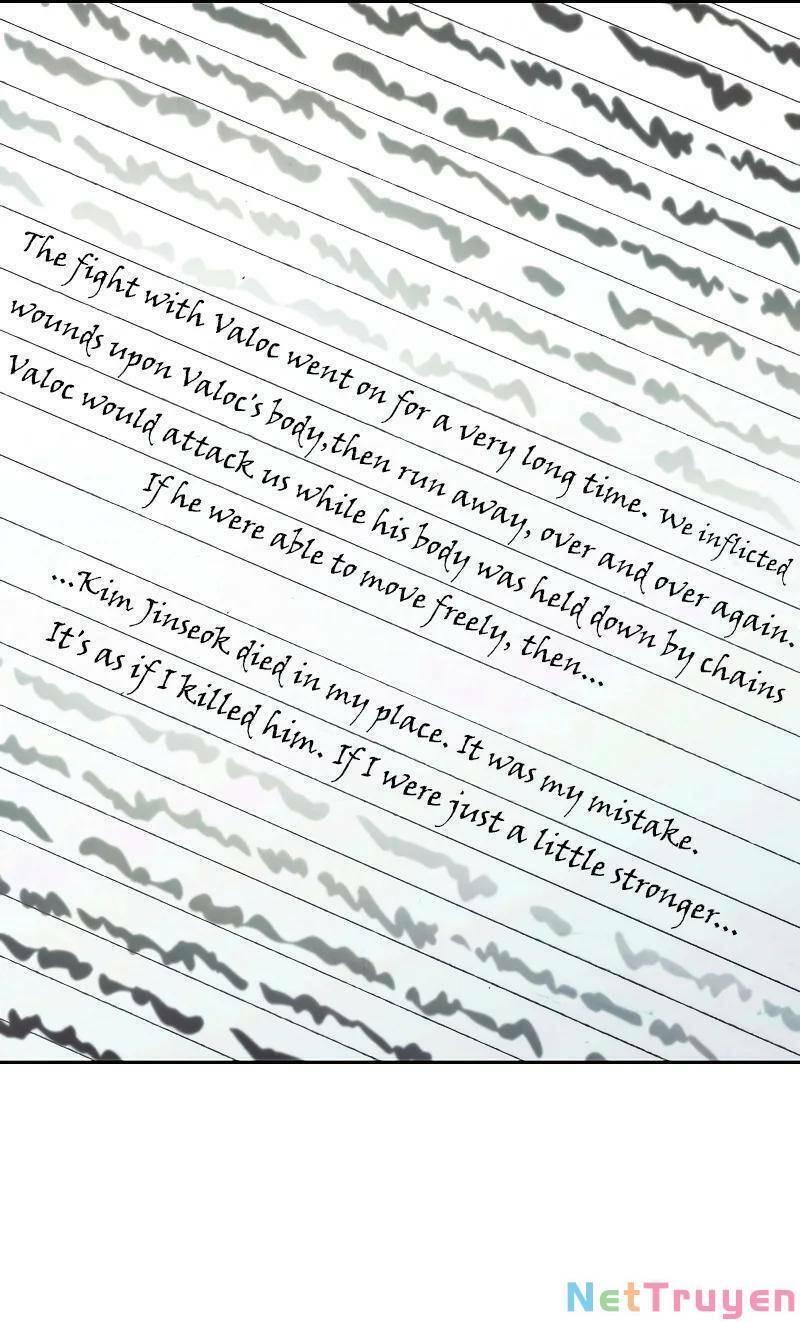 The fight with Valoc went on for a very long time. We inflicted
wounds upon Valoc's body,then run away, over and over again.
Valoc would attack us while his body was held down by chains
If he were able to move freely, then...
...Kim Jinseok died in my place. It was my mistake.
It's as if I killed him. If I were just a little stronger...
NetTruyen